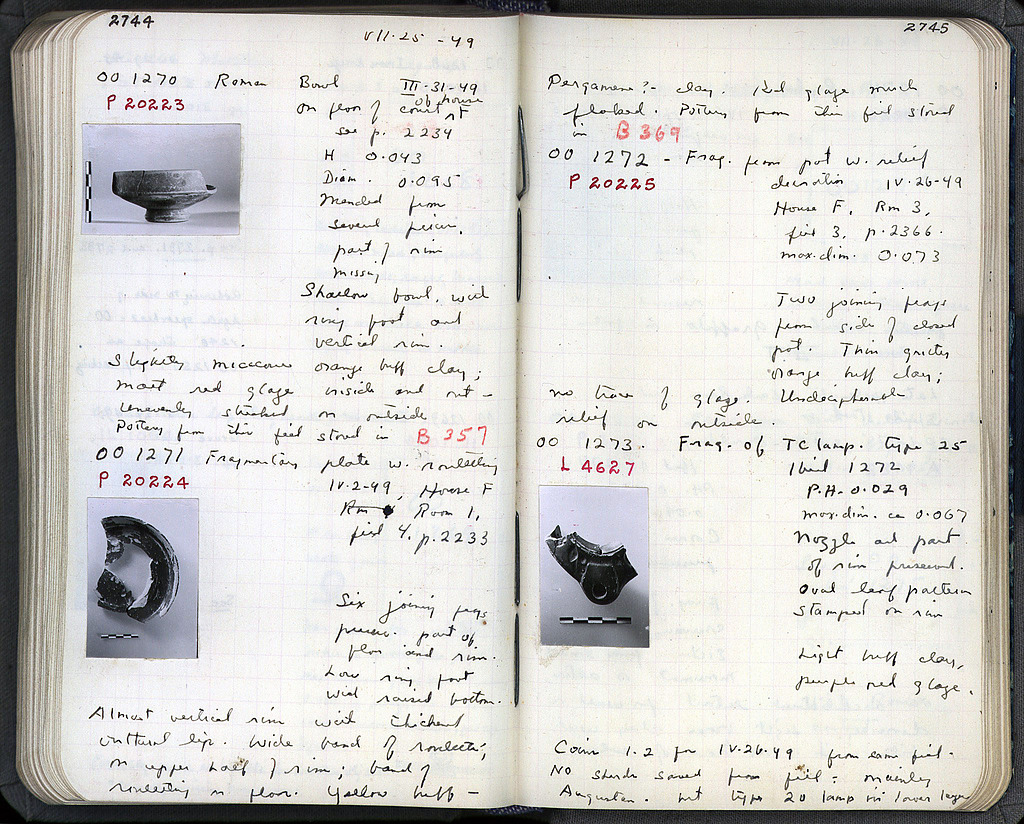 2744
VII·25 - 49
OO 1270 Roman Bowl III-31-49
P 20223
on floor of court of house F
see p. 2234
H 0.043
Diam. 0.095
Mended from
several pieces,
part of rim
missing
Shallow bowl, with
ring foot and
vertical rim.
Slightly micaceous orange buff clay;
matt red glaze inside and out -
unevenly streaked on outside
Pottery from this fill stored in B 357
OO 1271 Fragmentary plate w. rouletting
P 20224
IV-2-49, House F
Rm Room 1,
fill 4, p. 2233
Six joining frags
preserve part of
floor and rim.
Low ring foot
with raised bottom.
Almost vertical rim with thickened
outturned lip. Wide band of rouletting
on upper half of rim; band of
rouletting on floor. Yellow buff -
2745
Pergamene ?- clay. Red glaze much
flaked. Pottery from this fill stored
in B 369
OO 1272 - Frag. from pot w. relief
P 20225
decoration IV-26-49
House F, Rm 3,
fill 3, p. 2366.
max. dim. 0.073
Two joining frags
from side of closed
pot. Thin gritty
orange buff clay;
no trace of glaze. Undecipherable
relief on outside.
OO 1273. Frag. of TC lamp. type 25
L 4627
Ibid 1272
P.H. 0.029
max. dim. ca 0.067
Nozzle and part
of rim preserved.
oval leaf pattern
stamped on rim
Light buff clay,
purple red glaze.
Coins 1-2 for IV-26-49 from same fill.
No sherds saved from fill: mainly
Augustan. but type 20 lamp in lower layer